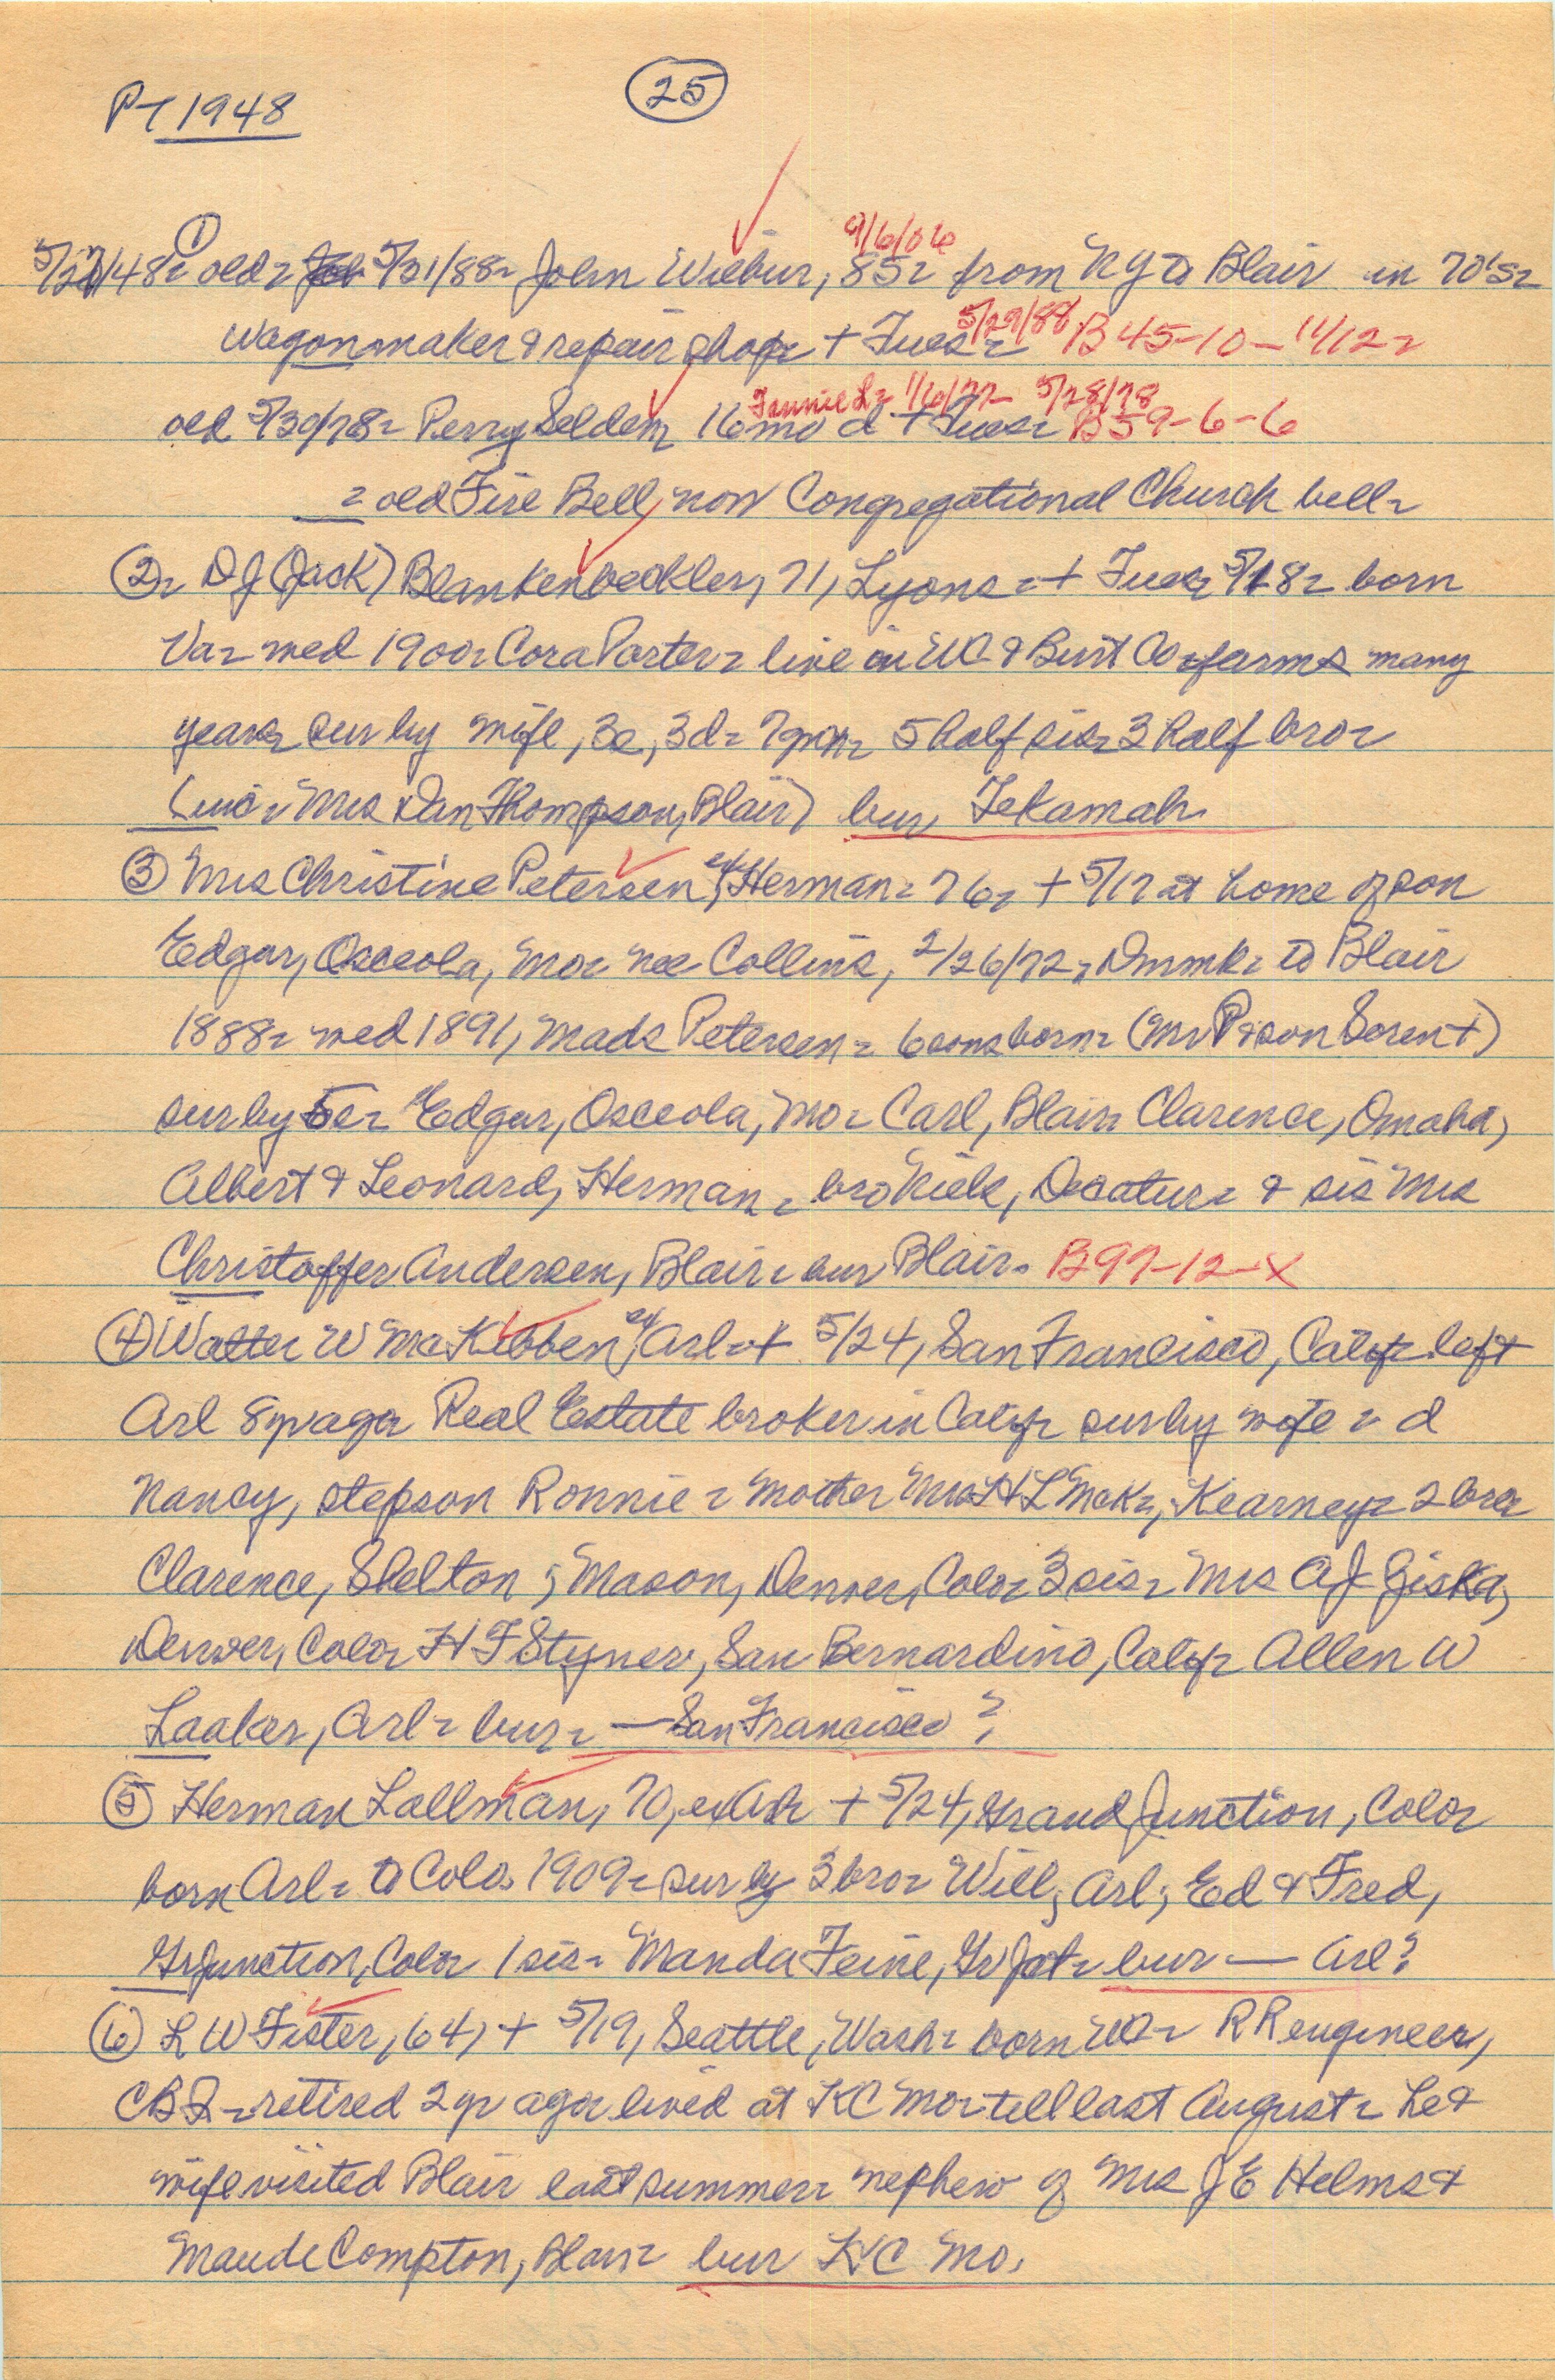 PT 1948
25
9/6/06
5/27/48= old= 5/31/88= John Wilbur, 85= from NY to Blair in 70's=
5/29/88
wagonmaker & repair shop= + Tues= B 45-10-11/12=
Fannie L= 1/6/77- 5/28/78
old 5/30/78= Perry Selden, 16 mo d + Tues= B59-6-6
= old Fire Bell, now Congregational Church bell=
(2)= D J (Jack) Blankenbeckler, 71, Lyons= + Tues= 5/18= born
Va= wed 1900= Cora Porter= live in WC & Burt Co= farms many
years sur by wife, 3s, 3d= 7 5 half sis= 3 half bro=
(inc= Mrs Dan Thompson, Blair) bur, Tekamah.
(3) Mrs Christine Petersen, ex Herman= 76= + 5/17 at home of son
Edgar, Osceola, Mo= nee Collins, 2/26/72= Dnmk= to Blair
1888= wed 1891, Mads Petersen= 6 sons born= (Mr P & son Soren +)
sur by 5s= Edgar, Osceola, Mo= Carl, Blair= Clarence, Omaha,
Albert & Leonard, Herman= bro Niels, Decatur= & sis Mrs
Christoffer Andersen, Blair= bur Blair. B97-12-X
(4) Walter W McKibben, ex Arl= + 5/24, San Francisco, Calif= left
Arl 8 yr ago= Real Estate broker in Calif= sur by wife= d
Nancy, stepson Ronnie= Mother Mrs H L McK=, Kearney= 2 bro=
Clarence, Shelton; Mason, Denver, Colo= 3 sis= Mrs A J Jiska,
Denver, Colo= H F Styner, San Bernardino, Calif= Allen W
Laaker, Arl= bur= — San Francisco?
(5) Herman Lallman, 70, ex Arl= + 5/24, Grand Junction, Colo=
born Arl= to Colo. 1909= sur by 3 bro= Will, Arl; Ed & Fred,
Gr Junction, Colo= 1 sis= Manda Feine, Gr Jct= bur — Arl?
(6) L W Fister, 64, + 5/19, Seattle, Wash= born WC= RR engineer,
CBQ= retired 2 yr ago= lived at KC Mo= till last August= he &
wife visited Blair last summer= nephew of Mrs J E Helms &
Maude Compton, Blair= bur KC Mo.